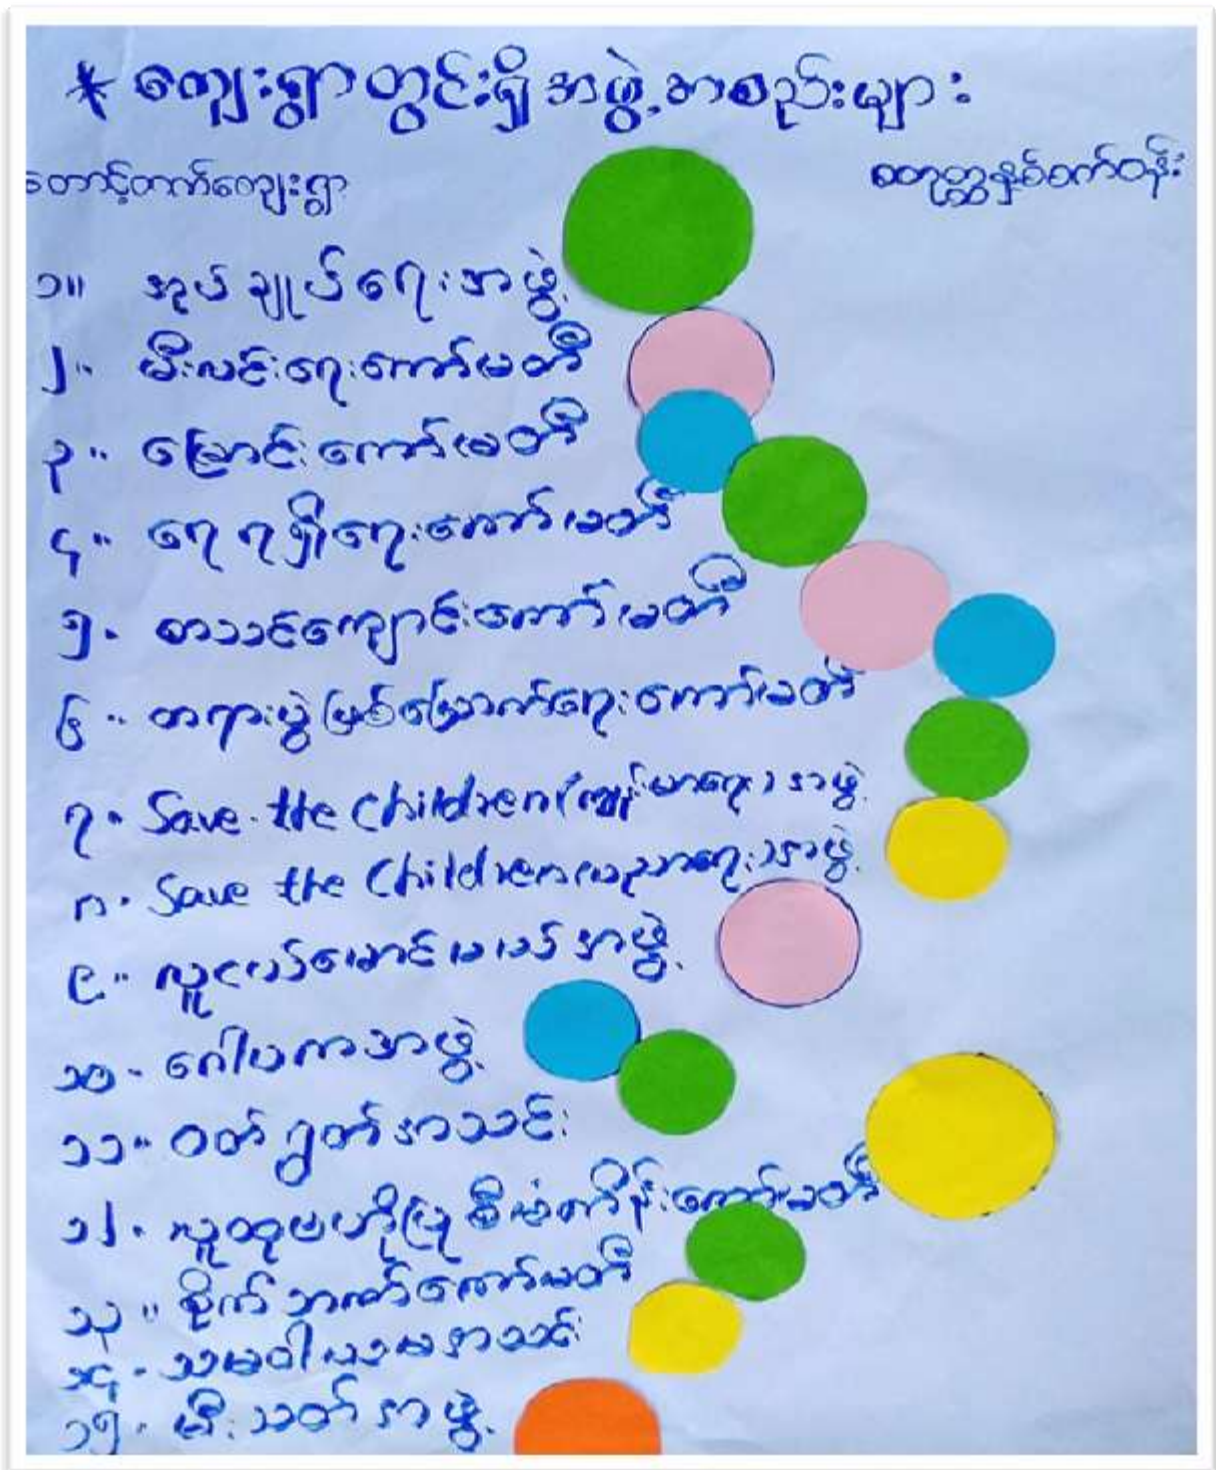 * ကျေးရွာတွင်းရှိ အဖွဲ့အစည်းများ
တောင့်တက်ကျေးရွာ စတုတ္ထနှစ်စက်ဝန်း
၁။ အုပ်ချုပ်ရေးအဖွဲ့
၂။ မီးလင်းရေးကော်မတီ
၃။ မြောင်းကော်မတီ
၄။ ရေရရှိရေးကော်မတီ
၅။ စာသင်ကျောင်းကော်မတီ
၆။ တရားပွဲဖြစ်မြောက်ရေးကော်မတီ
၇။ Save the Children (ကျန်းမာရေး) အဖွဲ့
၈။ Save the Children (ပညာရေး) အဖွဲ့
၉။ လူငယ်မောင်မယ်အဖွဲ့
၁၀။ ဂေါပကအဖွဲ့
၁၁။ ဝတ်ရွတ်အသင်း
၁၂။ လူထုဗဟိုပြုစီမံကိန်းကော်မတီ
၁၃။ စိုက်ဘဏ်ကော်မတီ
၁၄။ သမဝါယမအသင်း
၁၅။ မီးသတ်အဖွဲ့